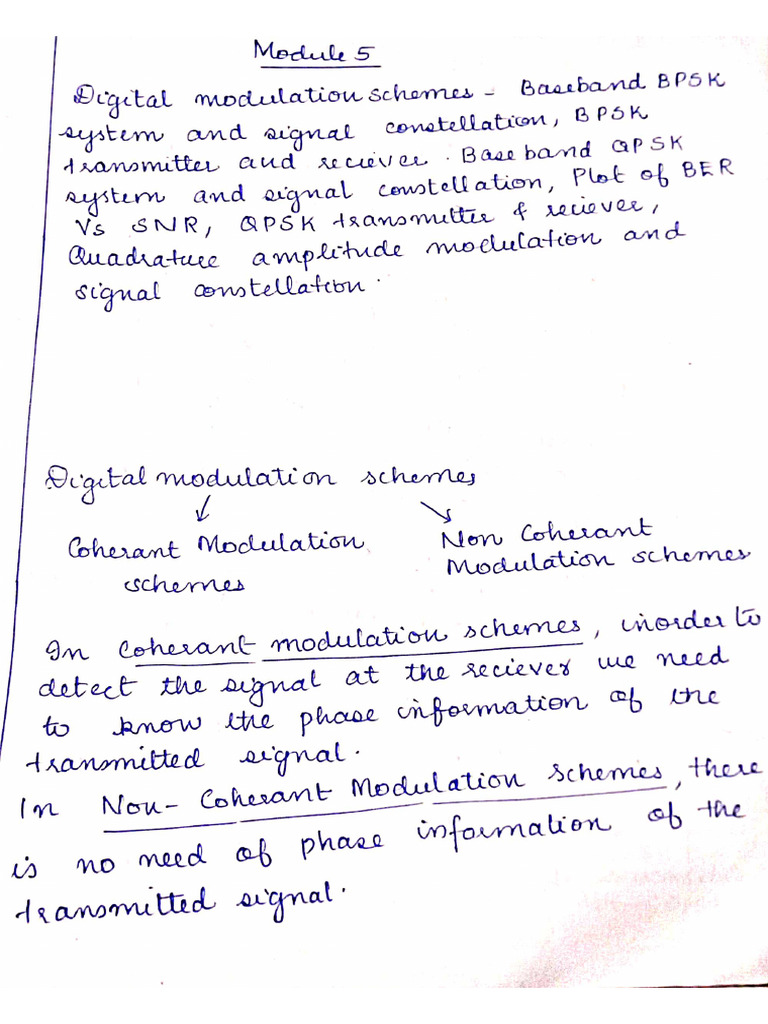 Module 5
Digital modulation schemes - Baseband BPSK
system and signal constellation, BPSK
transmitter and reciever. Baseband QPSK
system and signal constellation, Plot of BER
Vs SNR, QPSK transmitter & reciever,
Quadrature amplitude modulation and
signal constellation.
Digital modulation schemes
↙ ↘
Coherant Modulation schemes
Non Coherant Modulation schemes
In Coherant modulation schemes, inorder to
detect the signal at the reciever we need
to know the phase information of the
transmitted signal.
In Non-Coherant Modulation schemes, there
is no need of phase information of the
transmitted signal.